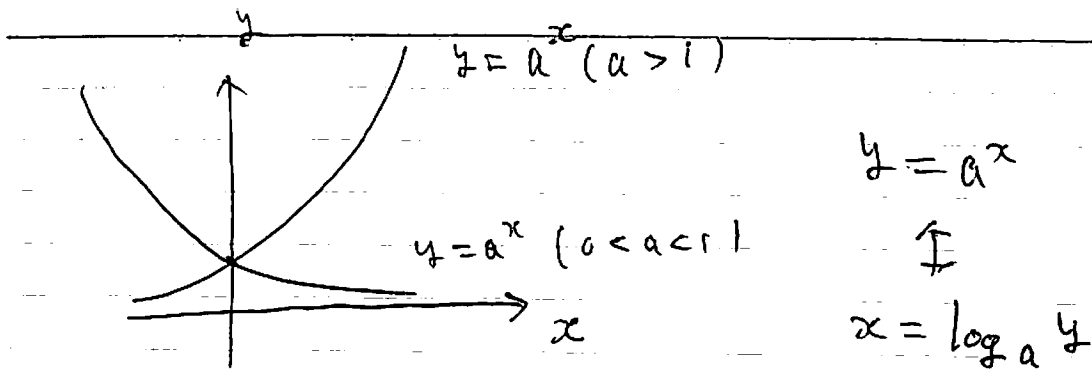 y
y = a^x (a > 1)
y = a^x (0 < a < 1)
x
y = a^x
⇕
x = log_a y